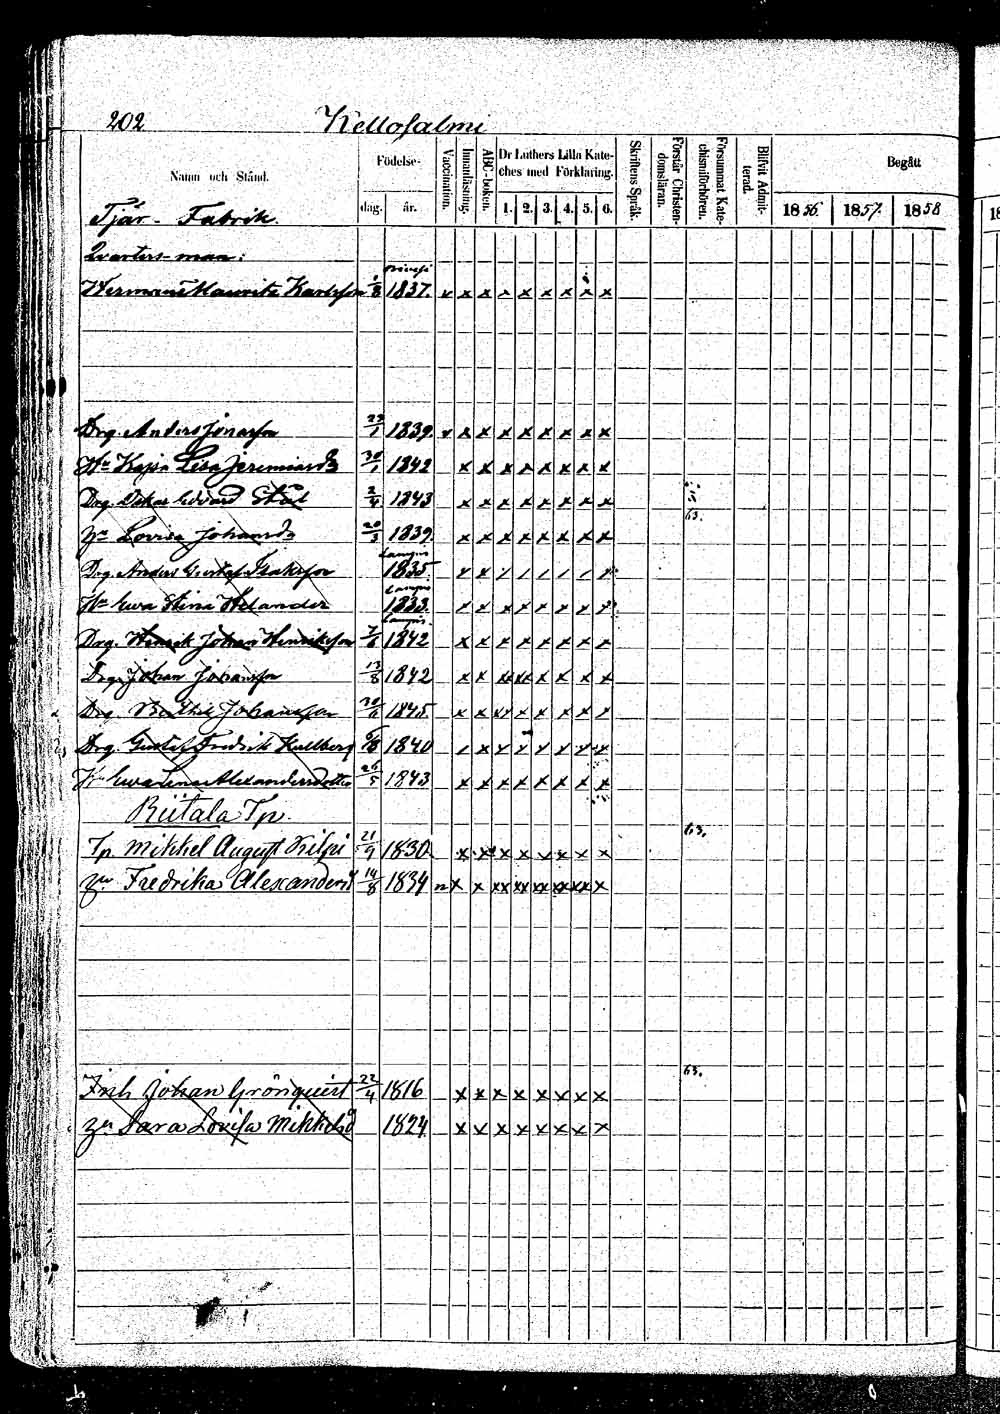 202 Kellosalmi
Namn och Stånd. Födelse- dag. år. Vaccination. Innanläsning. ABC-boken. Dr Luthers Lilla Kateches med Förklaring. 1. 2. 3. 4. 5. 6. Skriftens Språk. Förstår Christendomsläran. Försummat Katechismiförhören. Blifvit Admitterad. Begått 1856. 1857. 1858
Tjär-Fabrik.
Qvarters-man:
Herman Mauritz Karlsson 1/8 1837. v x x x x x x x x
Drg. Anders Jonasson 23/1 1839. v x x x x x x x x
Hu Kajsa Lisa Jeremiasd 30/1 1842 x x x x x x x x
Drg. Oskar Edvard Stål 2/9 1843 x x x x x x x x
63.
Lovisa Johansd 20/3 1839. x x x x x x x x
Lampis
Drg. Anders Gustaf Isaksson 1835 x x / / / / / x
Lampis
Hu Ewa Stina Helander 1833. x x x x x x x x
Lampis
Drg. Henrik Johan Henriksson 7/6 1842 x x x x x x x x
Drg. Johan Johansson 13/8 1842 x x xx xx x x x x
Drg. Johansson 30/6 1845 x x xx x x x x /
Drg. Gustaf Fredrik Kullberg 6/8 1840 / x x x x x x x
Hu Ewa Lena Alexandersdotter 26/5 1843 x x x x x x x x
Riitala Tp.
63.
Tp. Mikkel August Kilpi 21/9 1830 x x x x x x x x
Fredrika Alexandersd 14/8 1834 n x x xx xx xx xx xx x
63.
Inh Johan Grönquist 22/4 1816 x x x x x x x x
Sara Lovisa Mikkelsd 1824. x x x x x x x x